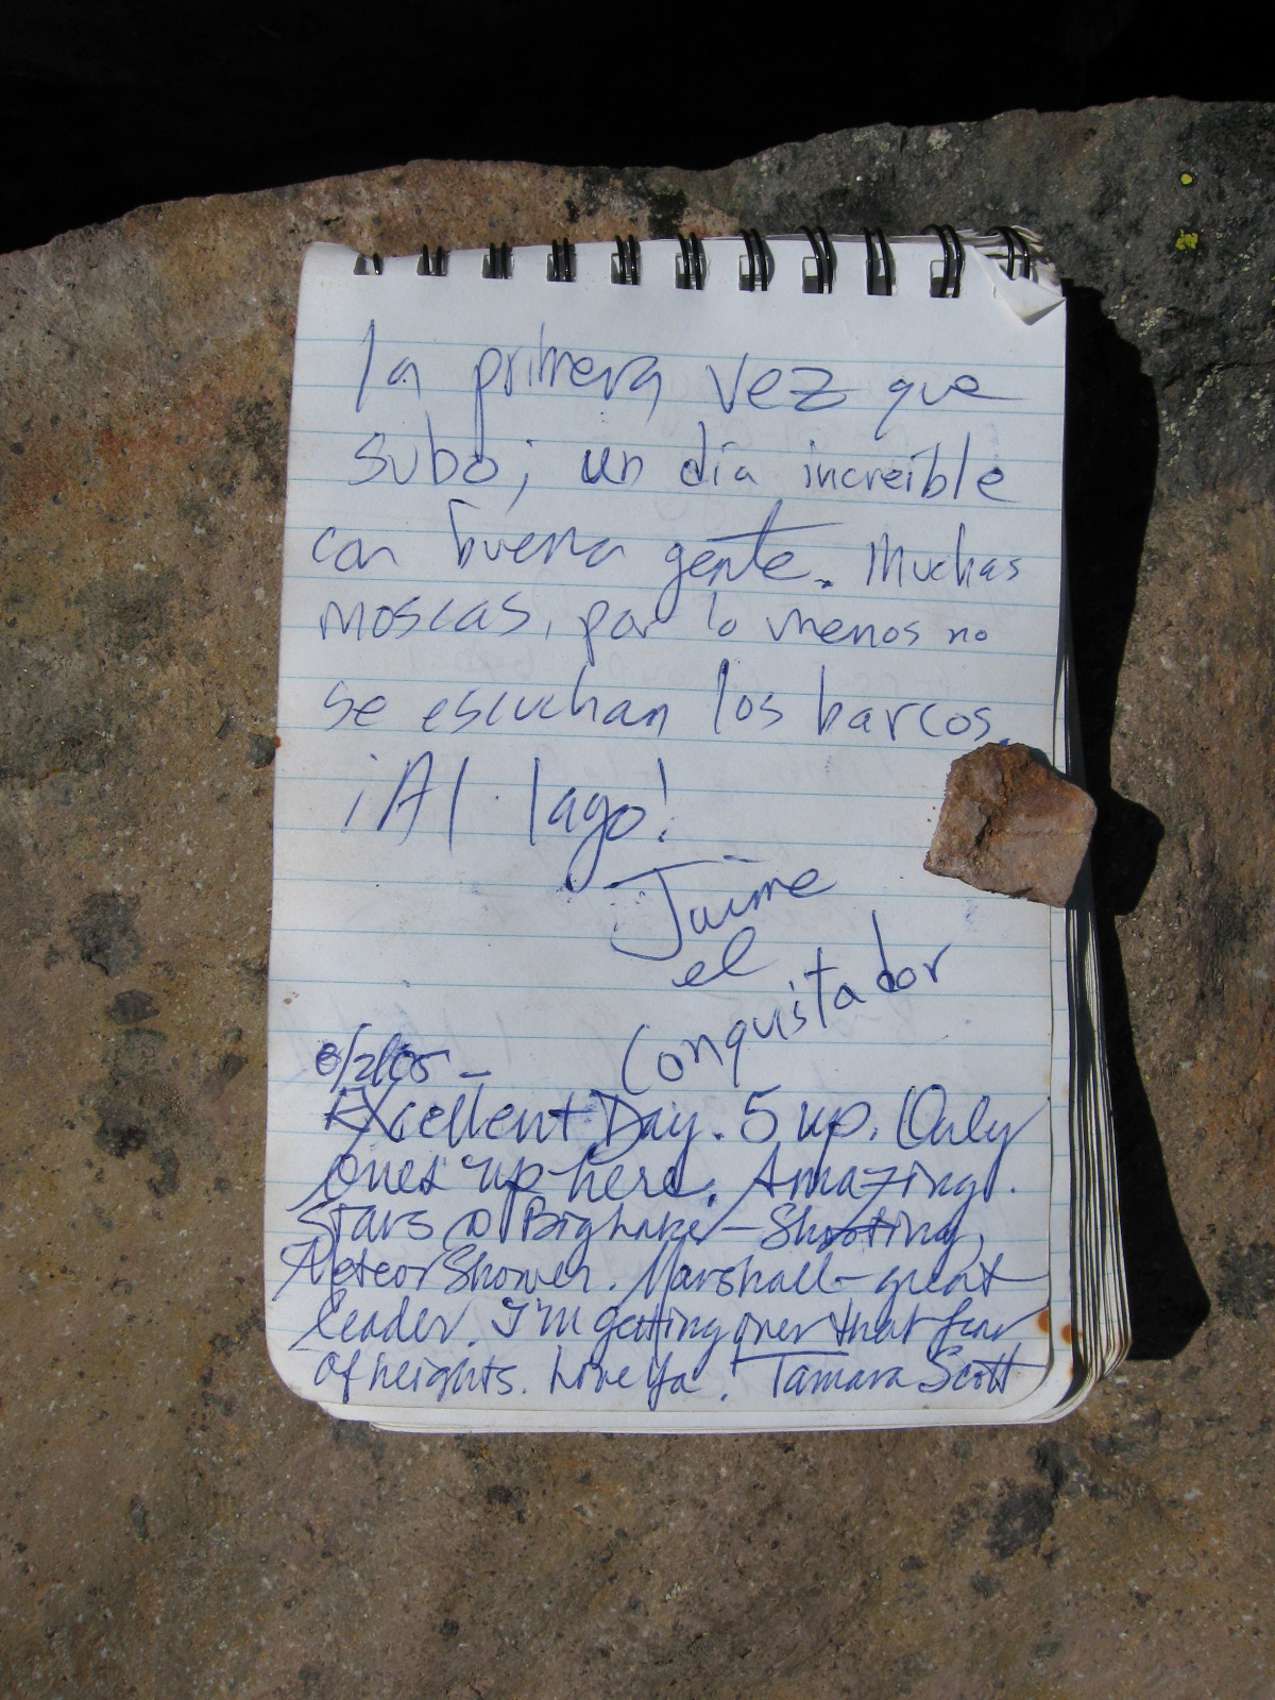 la primera vez que
subo; un día increible
con buena gente. Muchas
moscas, por lo menos no
se escuchan los barcos.
¡Al lago!
Jaime
el
Conquistador
8/2/05 -
Excellent Day. 5 up. Only
ones up here. Amazing.
Stars @ Big Lake - Shooting,
Meteor Shower. Marshall - great
leader. I'm getting over that fear
of heights. Love ya. Tamara Scott